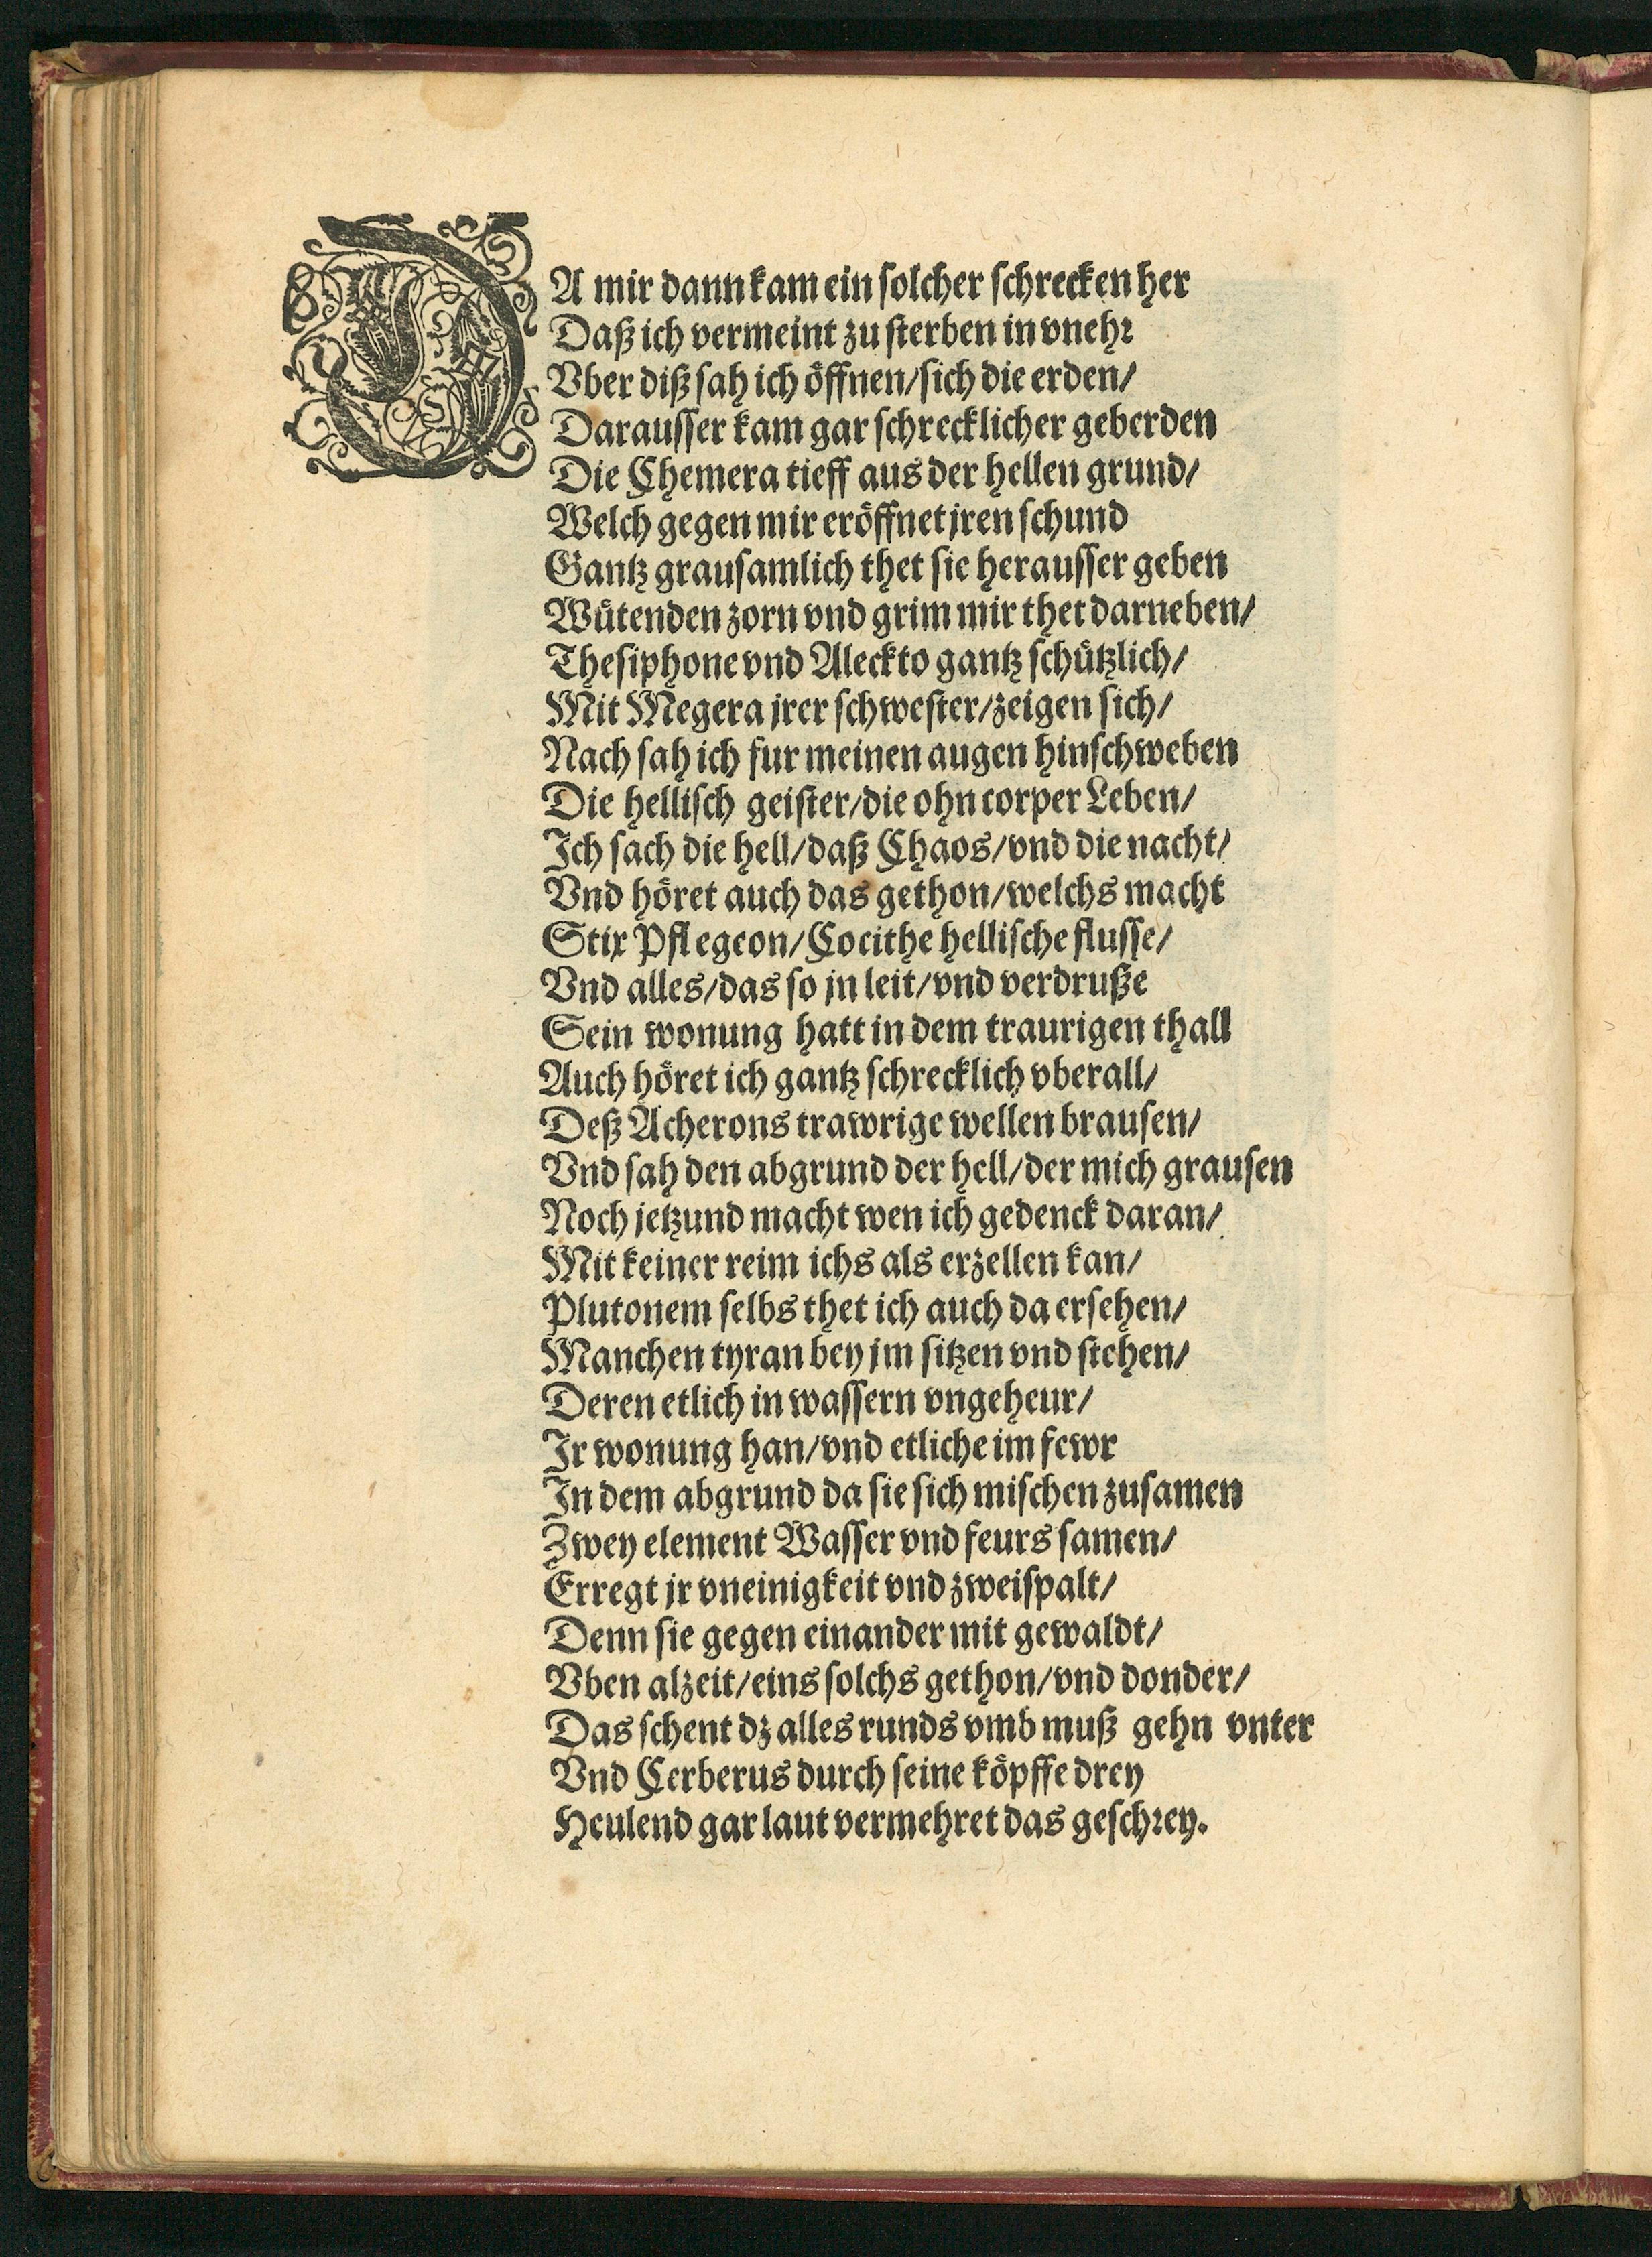 DA mir dann kam ein solcher schrecken her
Daß ich vermeint zu sterben in vnehr
Vber diß sah ich öffnen/sich die erden/
Darausser kam gar schrecklicher geberden
Die Chemera tieff aus der hellen grund/
Welch gegen mir eröffnet jren schund
Gantz grausamlich thet sie herausser geben
Wütenden zorn vnd grim mir thet darneben/
Thesiphone vnd Aleckto gantz schützlich/
Mit Megera jrer schwester/zeigen sich/
Nach sah ich fur meinen augen hinschweben
Die hellisch geister/die ohn corper Leben/
Ich sach die hell/daß Chaos/vnd die nacht/
Vnd höret auch das gethon/welchs macht
Stix Pflegeon/Cocithe hellische flusse/
Vnd alles/das so jn leit/vnd verdruße
Sein wonung hatt in dem traurigen thall
Auch höret ich gantz schrecklich vberall/
Deß Acherons trawrige wellen brausen/
Vnd sah den abgrund der hell/der mich grausen
Noch jetzund macht wen ich gedenck daran/
Mit keiner reim ichs als erzellen kan/
Plutonem selbs thet ich auch da ersehen/
Manchen tyran bey jm sitzen vnd stehen/
Deren etlich in wassern vngeheur/
Ir wonung han/vnd etliche im fewr
In dem abgrund da sie sich mischen zusamen
Zwey element Wasser vnd feurs samen/
Erregt jr vneinigkeit vnd zweispalt/
Denn sie gegen einander mit gewaldt/
Vben alzeit/eins solchs gethon/vnd donder/
Das schent dz alles runds vmb muß gehn vnter
Vnd Cerberus durch seine köpffe drey
Heulend gar laut vermehret das geschrey.